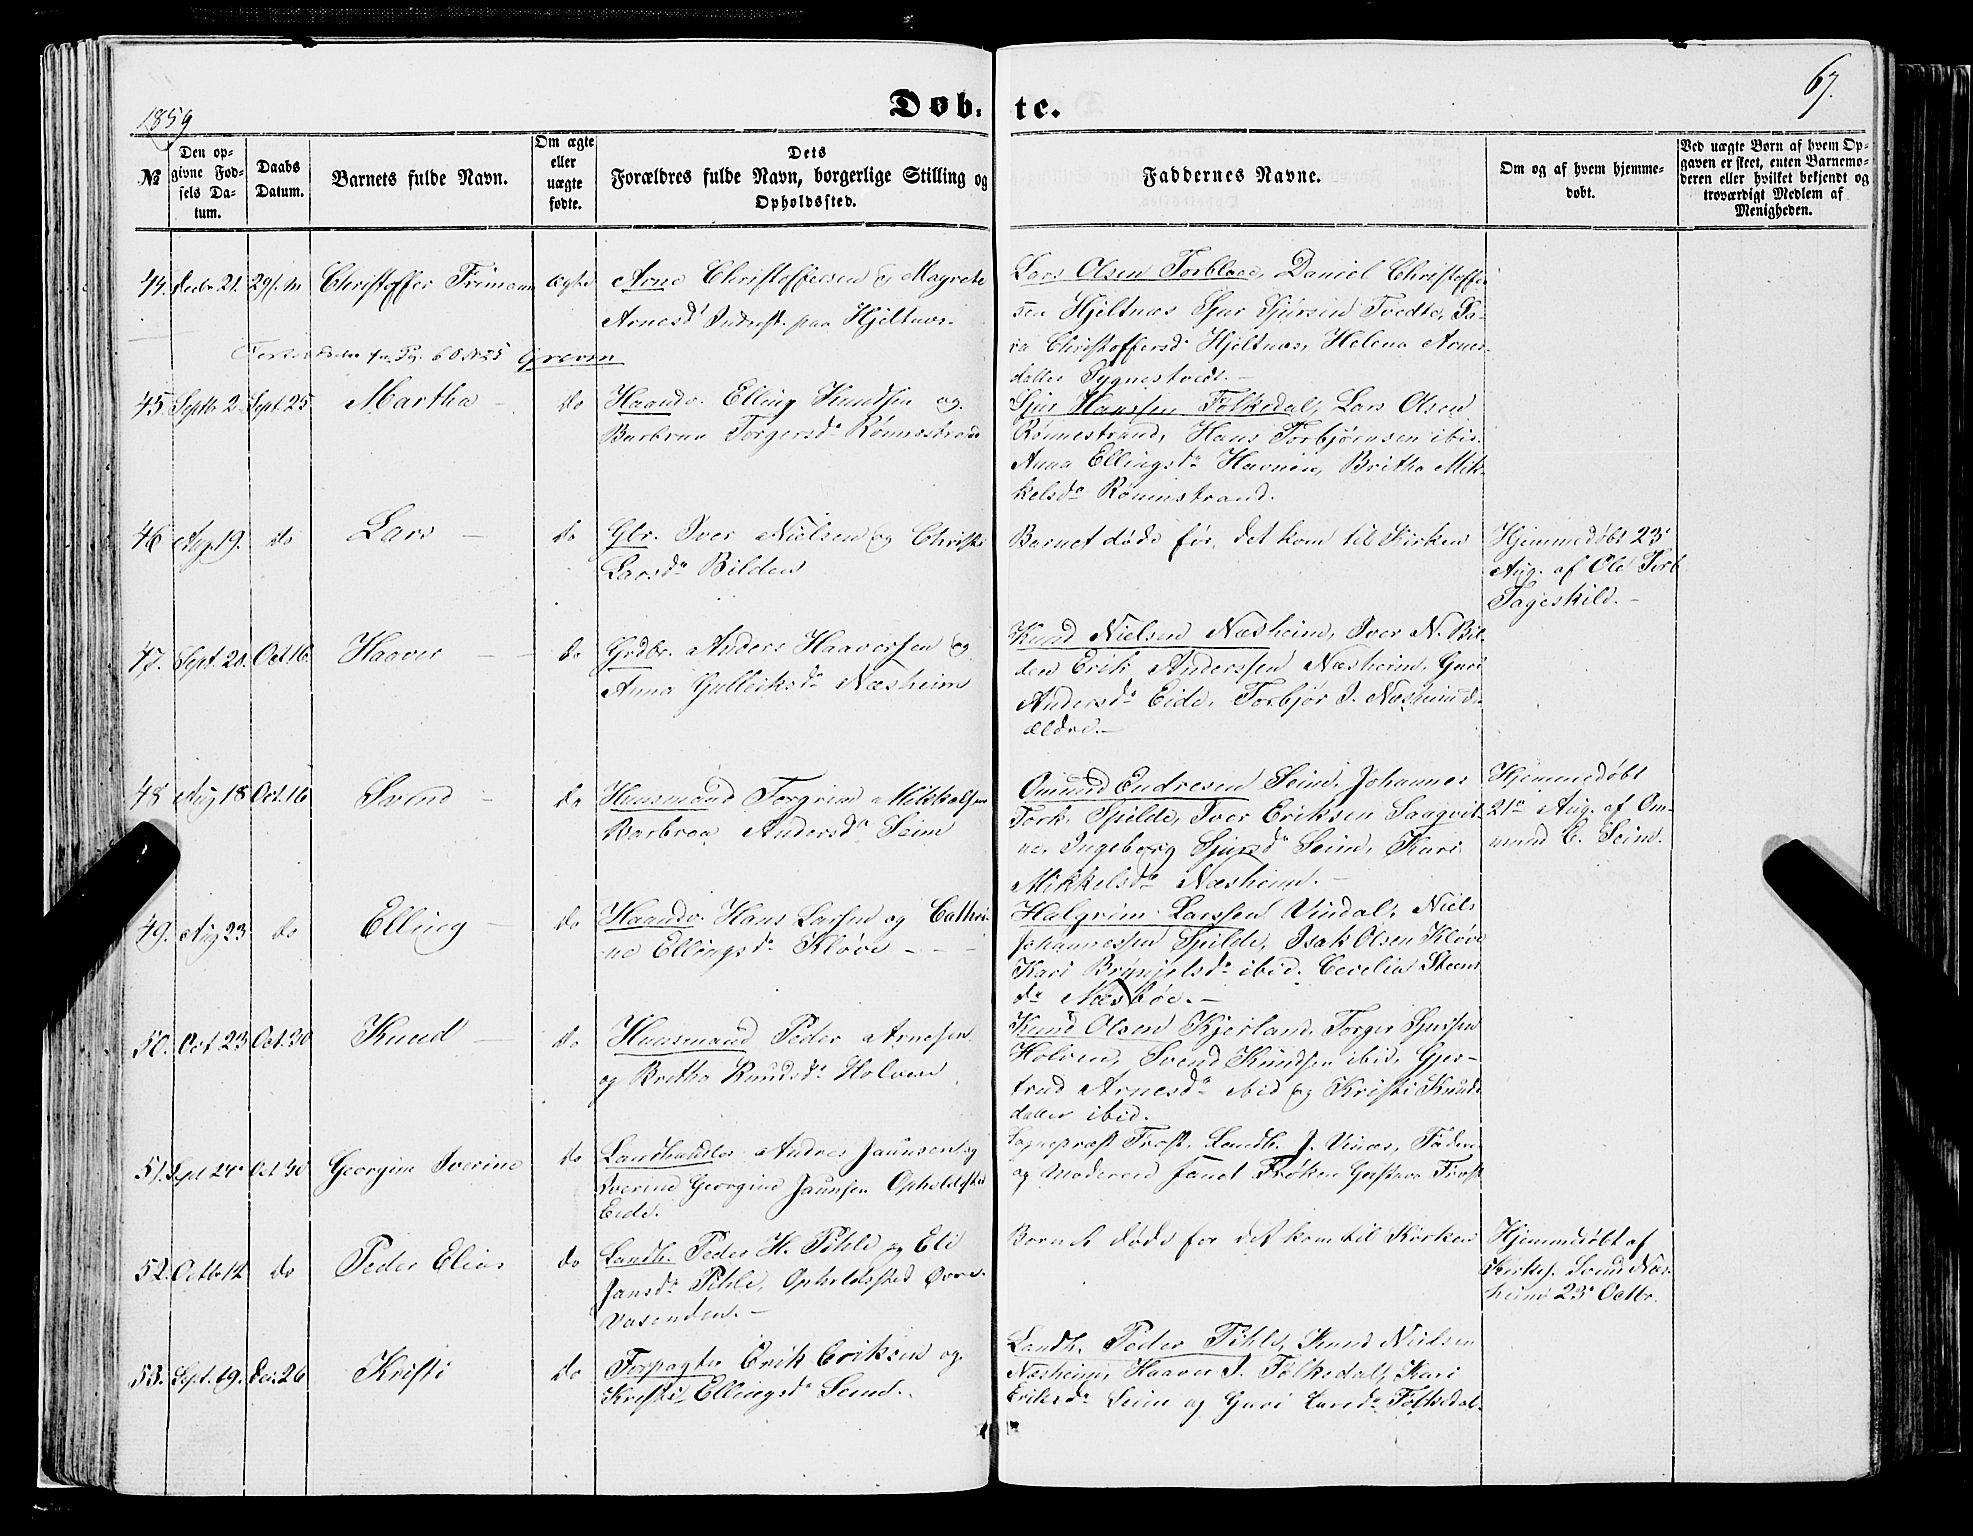 1859
Døb- te.
67.
No
Den op-
givne Fød-
sels Da-
tum.
Daabs
Datum.
Barnets fulde Navn.
Om ægte
eller
uægte
fødte.
Dets
Forældres fulde Navn, borgerlige Stilling og
Opholdssted.
Faddernes Navne.
Om og af hvem hjemme-
døbt.
Ved uægte Børn af hvem Op-
gaven er skeet, enten Barnemo-
deren eller hvilket bekjendt og
troværdigt Medlem af
Menigheden.
44. Decbr. 21. Christoffer Frimann ægte Arne Christoffersen og Magrete
Arnesd. paa Hjeltnæs
Lars Olsen Torblaae, Daniel Christoffer-
sen Hjeltnæs Sjur Sjursen Tvedte,
Christoffersdr. Hjeltnæs, Helena Arnes-
datter Sygnestvedt.
Graven
45. Septb. 2. Sept. 25. Martha do Haandv. Elling Knudsen og
Barbraa Torgersdr. Rønnestrand
Sjur Hanssen Folkedal, Lars Olsen
Rønnestrand, Hans Torbjørnsen ibid.
Anna Ellingsdr. Havnen, Britha Mik-
kelsdr. Rønnestrand.
46. Aug. 19. do Lars do Gbr. Iver Nielsen og Christi
Larsdr. Bilden
Barnet døde før det kom til Kirken
Hjemmedøbt 23
Aug. af Ole Torb.
47. Sept. 20. Oct. 16. Haaver do Grdbr. Anders Haaversen og
Anna Gulleiksdr. Næsheim
Knud Nielsen Næsheim, Iver N. Bil-
den Erik Anderssen Næsheim, Guri
Andersdr. Eide, Torbjør I. Næsheim d.
ældre.
48. Aug 18 Oct. 16 Svend do Huusmand Torgrim Mikkelsen
Barbraa Andersdr. Seim
Omund Endresen Seim, Johannes
Tork. Spilde, Iver Eriksen Saaqvit-
ne, Ingeborg Sjursdr. Seim, Kari
Mikkelsdr. Næsheim.
Hjemmedøbt
21de Aug. af Om-
mund E. Seim.
49. Aug 23 do Elling do Haandv. Hans Larsen og Cathri-
ne Ellingsdr. Kløve
Halgrim Larssen Vindal, Niels
Johannessen Spilde, Isak Olsen Kløve
Kari Brynjelsdr. ibid. Cecelia Steens
dr. Næsbøe.
50. Oct 23 Oct. 30 Knud do Huusmand Peder Arnesen
og Britha Knudsdr. Holven
Knud Olsen Kjerland, Torger Sjursen
Holven, Svend Knudsen ibid, Gjer-
trud Arnesdr. ibid og Kristi Knuds
datter ibid.
51. Sept 24 Oct 30 Georgine Iverine do Landhandler Andres Jaunsen og
Iverine Georgine Jaunsen Opholdsted
Eide.
Sognepræst Frost, Landh. J. Vinæs, Faderen
og Moderen samt Frøken Gustava Frost
52. Octb. 12 do Peder Elias do Landh. Peder H. Pihl og Eli
Jansdr. Pihl, Opholdssted Øvre-
vasenden.
Barnet døde før det kom til Kirken
Hjemmedøbt af
Kirkes. Svend Næs-
heim 23 Octbr.
53. Sept. 19. Dec. 26 Kristi do Forpagter Erik Eriksen og
Kristi Ellingsdr. Seim.
Landh. Peder Pihl, Knud Nielsen
Næsheim, Haaver I. Folkedal, Kari
Eriksdr. Seim og Guri Larsdr. Folkedal.